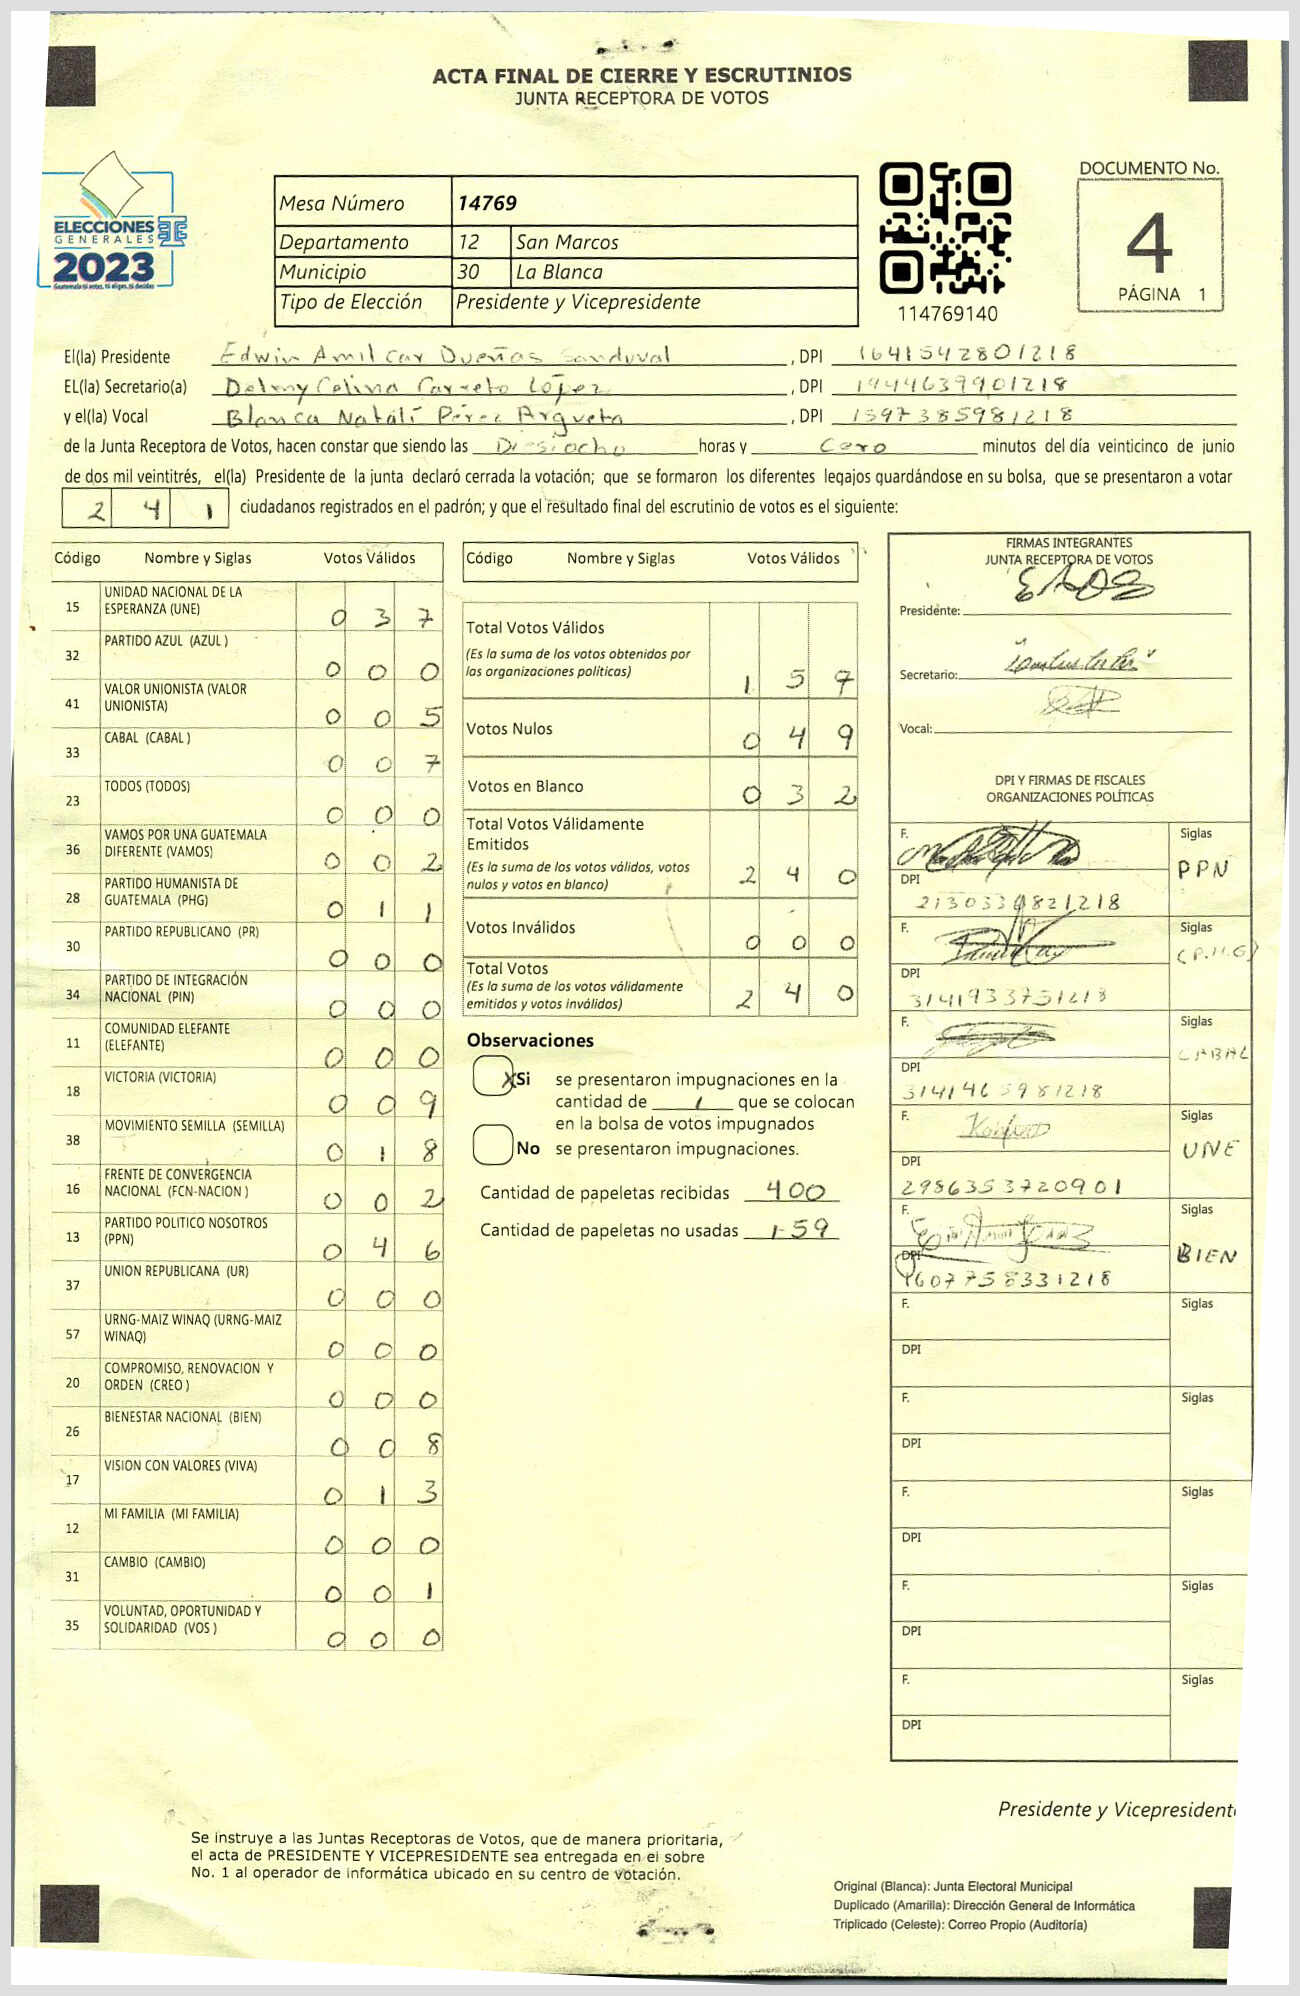 ACTA FINAL DE CIERRE Y ESCRUTINIOS
JUNTA RECEPTORA DE VOTOS
ELECCIONES
GENERALES
2023
Guatemala tú antes, tú eliges, tú decides
Mesa Número 14769
Departamento 12 San Marcos
Municipio 30 La Blanca
Tipo de Elección Presidente y Vicepresidente
114769140
DOCUMENTO No.
4
PÁGINA 1
El(la) Presidente Edwin Amilcar Dueñas Sandoval, DPI 1641542801218
EL(la) Secretario(a) Delmy Celina Carreto López, DPI 1944639901218
y el(la) Vocal Blanca Natalí Pérez Argueta, DPI 1597385981218
de la Junta Receptora de Votos, hacen constar que siendo las Diesiocho horas y Cero minutos del día veinticinco de junio
de dos mil veintitrés, el(la) Presidente de la junta declaró cerrada la votación; que se formaron los diferentes legajos guardándose en su bolsa, que se presentaron a votar
2 4 1 ciudadanos registrados en el padrón; y que el resultado final del escrutinio de votos es el siguiente:
Código Nombre y Siglas Votos Válidos
15 UNIDAD NACIONAL DE LA ESPERANZA (UNE) 0 3 7
32 PARTIDO AZUL (AZUL ) 0 0 0
41 VALOR UNIONISTA (VALOR UNIONISTA) 0 0 5
33 CABAL (CABAL ) 0 0 7
23 TODOS (TODOS) 0 0 0
36 VAMOS POR UNA GUATEMALA DIFERENTE (VAMOS) 0 0 2
28 PARTIDO HUMANISTA DE GUATEMALA (PHG) 0 1 1
30 PARTIDO REPUBLICANO (PR) 0 0 0
34 PARTIDO DE INTEGRACIÓN NACIONAL (PIN) 0 0 0
11 COMUNIDAD ELEFANTE (ELEFANTE) 0 0 0
18 VICTORIA (VICTORIA) 0 0 9
38 MOVIMIENTO SEMILLA (SEMILLA) 0 1 8
16 FRENTE DE CONVERGENCIA NACIONAL (FCN-NACION ) 0 0 2
13 PARTIDO POLITICO NOSOTROS (PPN) 0 4 6
37 UNION REPUBLICANA (UR) 0 0 0
57 URNG-MAIZ WINAQ (URNG-MAIZ WINAQ) 0 0 0
20 COMPROMISO, RENOVACION Y ORDEN (CREO ) 0 0 0
26 BIENESTAR NACIONAL (BIEN) 0 0 8
17 VISION CON VALORES (VIVA) 0 1 3
12 MI FAMILIA (MI FAMILIA) 0 0 0
31 CAMBIO (CAMBIO) 0 0 1
35 VOLUNTAD, OPORTUNIDAD Y SOLIDARIDAD (VOS ) 0 0 0
Código Nombre y Siglas Votos Válidos
Total Votos Válidos
(Es la suma de los votos obtenidos por
las organizaciones políticas) 1 5 9
Votos Nulos 0 4 9
Votos en Blanco 0 3 2
Total Votos Válidamente
Emitidos
(Es la suma de los votos válidos, votos
nulos y votos en blanco) 2 4 0
Votos Inválidos 0 0 0
Total Votos
(Es la suma de los votos válidamente
emitidos y votos inválidos) 2 4 0
Observaciones
X Si se presentaron impugnaciones en la
cantidad de 1 que se colocan
en la bolsa de votos impugnados
No se presentaron impugnaciones.
Cantidad de papeletas recibidas 400
Cantidad de papeletas no usadas 159
FIRMAS INTEGRANTES
JUNTA RECEPTORA DE VOTOS
Presidente:
Secretario:
Vocal:
DPI Y FIRMAS DE FISCALES
ORGANIZACIONES POLÍTICAS
F. Siglas
PPN
DPI
F. Siglas
(P.H.G)
DPI
3141933751218
F. Siglas
CABAL
DPI
3141465981218
F. Siglas
UNE
DPI
2986353720901
F. Siglas
BIEN
DPI
1607758331218
F. Siglas
DPI
F. Siglas
DPI
F. Siglas
DPI
F. Siglas
DPI
F. Siglas
DPI
Presidente y Vicepresident
Se instruye a las Juntas Receptoras de Votos, que de manera prioritaria,
el acta de PRESIDENTE Y VICEPRESIDENTE sea entregada en el sobre
No. 1 al operador de informática ubicado en su centro de votación.
Original (Blanca): Junta Electoral Municipal
Duplicado (Amarilla): Dirección General de Informática
Triplicado (Celeste): Correo Propio (Auditoría)